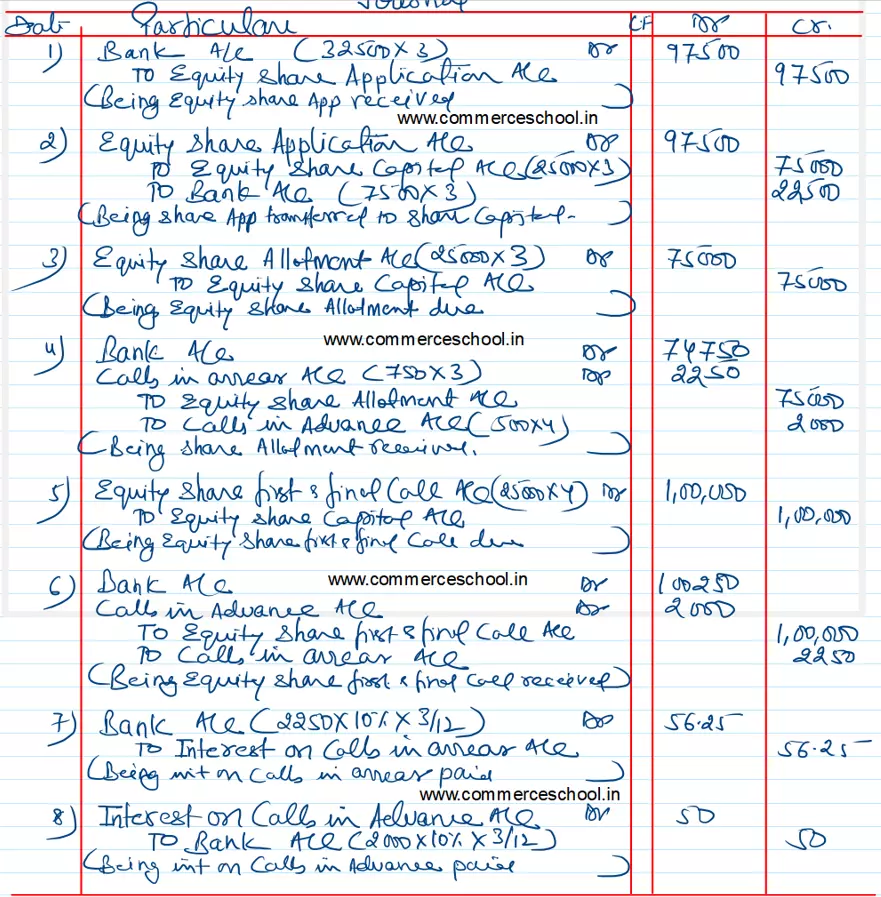 Journal
Date Particulars LF Dr Cr.
1) Bank A/c (32500 X 3) Dr 97500
To Equity Share Application A/c 97500
(Being Equity share App received)
www.commerceschool.in
2) Equity Share Application A/c Dr 97500
To Equity Share Capital A/c (25000 X 3) 75000
To Bank A/c (7500 X 3) 22500
(Being share App transferred to Share Capital-)
3) Equity Share Allotment A/c (25000 X 3) Dr 75000
To Equity Share Capital A/c 75000
(Being Equity Share Allotment due)
www.commerceschool.in
4) Bank A/c Dr 74750
Calls in arrear A/c (750 X 3) Dr 2250
To Equity Share Allotment A/c 75000
To Calls in Advance A/c (500 X 4) 2000
(Being Share Allotment received.)
5) Equity Share first & final Call A/c (25000 X 4) Dr 1,00,000
To Equity Share Capital A/c 1,00,000
(Being Equity Share first & final Call due)
www.commerceschool.in
6) Bank A/c Dr 100250
Calls in Advance A/c Dr 2000
To Equity Share first & final Call A/c 1,00,000
To Calls in arrear A/c 2250
(Being Equity Share first & final Call received)
7) Bank A/c (2250 X 10% X 3/12) Dr 56.25
To Interest on Calls in arrear A/c 56.25
(Being int on Calls in arrear paid)
www.commerceschool.in
8) Interest on Calls in Advance A/c Dr 50
To Bank A/c (2000 X 10% X 3/12) 50
(Being int on Calls in Advance paid)